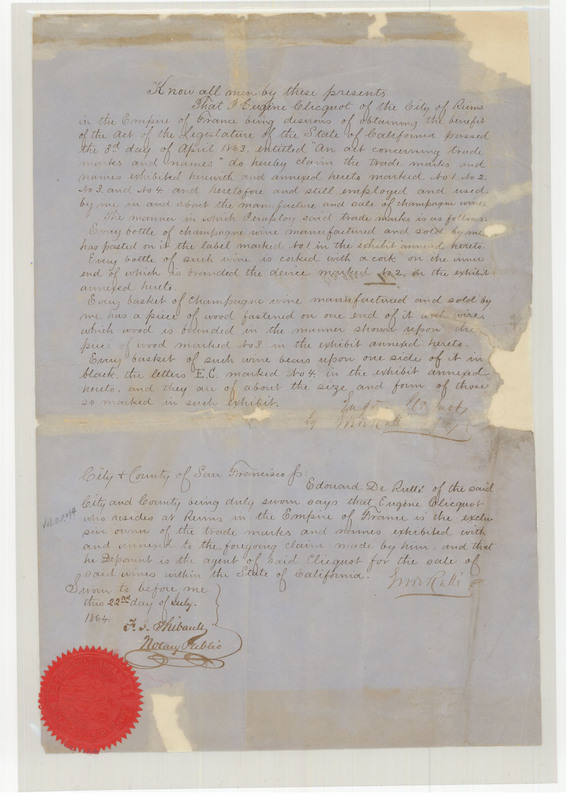 Know all men by these presents
That I Eugène Clicquot of the City of Reims
in the Empire of France being desirous of obtaining the benefit
of the Act of the Legislature of the State of California passed
the 3rd day of April 1863, entitled "An act concerning trade
marks and names" do hereby claim the trade marks and
names exhibited herewith and annexed hereto marked No 1 No 2
No 3 and No 4 and heretofore and still employed and used
by me in and about the manufacture and sale of champagne wine
The manner in which I employ said trade marks is as follows.
Every bottle of champagne wine manufactured and sold by me
has pasted on it the label marked No 1 in the exhibit annexed hereto.
Every bottle of such wine is corked with a cork on the inner
end of which is branded the device marked No 2, in the exhibit
annexed hereto.
Every basket of Champagne wine manufactured and sold by
me has a piece of wood fastened on one end of it with wire
which wood is branded in the manner shown upon the
piece of wood marked No 3 in the exhibit annexed hereto.
Every basket of such wine bears upon one side of it in
black the letters E.C. marked No 4, in the exhibit annexed
hereto, and they are of about the size and form of those
so marked in such exhibit.
by
City & County of San Francisco Ss
Edouard De Rutté of the said
City and County being duly sworn says that Eugène Clicquot
who resides at Reims in the Empire of France is the exclu
sive owner of the trade marks and names exhibited with
and annexed to the foregoing claim made by him, and that
he Deponent is the agent of said Clicquot for the sale of
said wines within the State of California.
Sworn to before me
this 22nd day of July.
1864.
F. J. Thibault
Notary Public